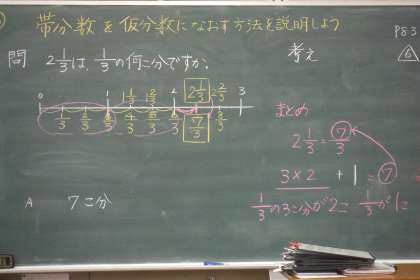 帯分数を仮分数になおす方法を説明しよう
P83
問 2 1/3は、1/3の何こ分ですか。
考え
0 1 1 1/3 1 2/3 2 2 1/3 2 2/3 3
1/3 2/3 3/3 4/3 5/3 6/3 7/3 8/3
A 7こ分
まとめ
2 1/3 = 7/3
3×2 + 1 = 7
1/3の3こ分が2こ 1/3が1こ